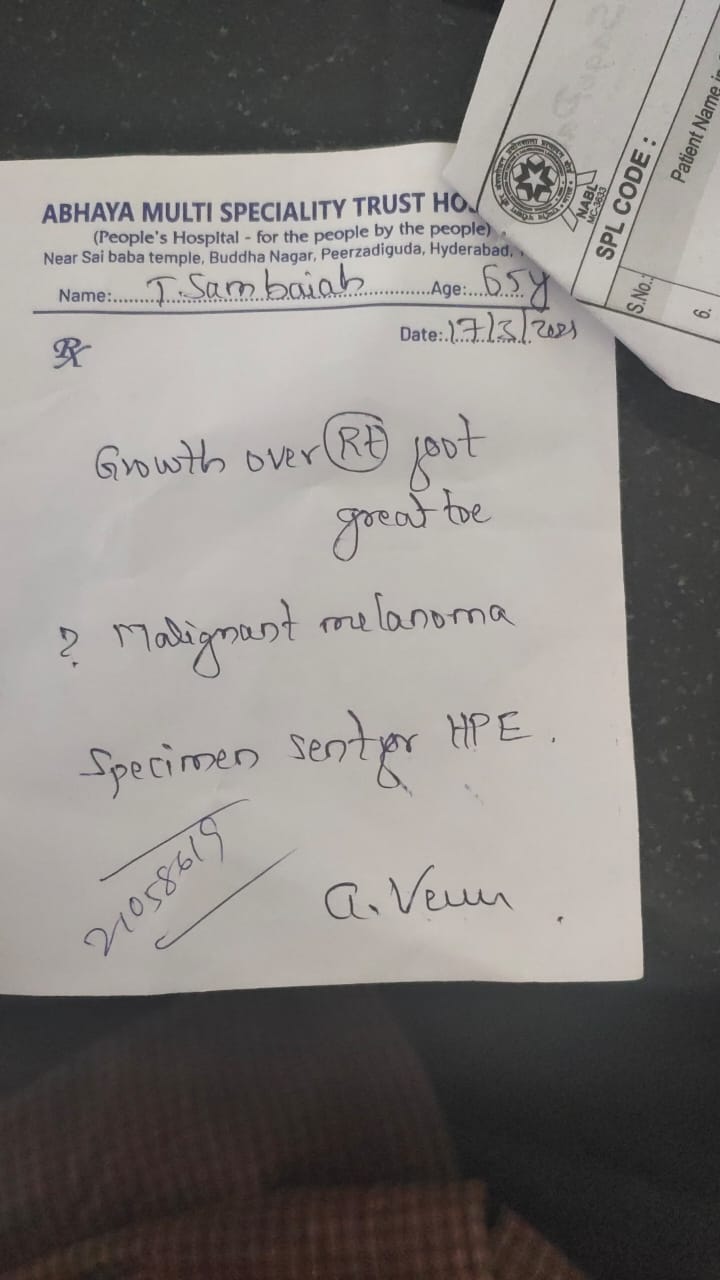 ABHAYA MULTI SPECIALITY TRUST HO
(People's Hospital - for the people by the people)
Near Sai baba temple, Buddha Nagar, Peerzadiguda, Hyderabad,
Name:........T. Sambaiah..............Age:...65y
Rx
Date:.17/3/2021
Growth over RT foot
great toe
? Malignant melanoma
Specimen sent for HPE.
21058619
NABL
MC-3633
SPL CODE :
S.No.:
Patient Name
6.